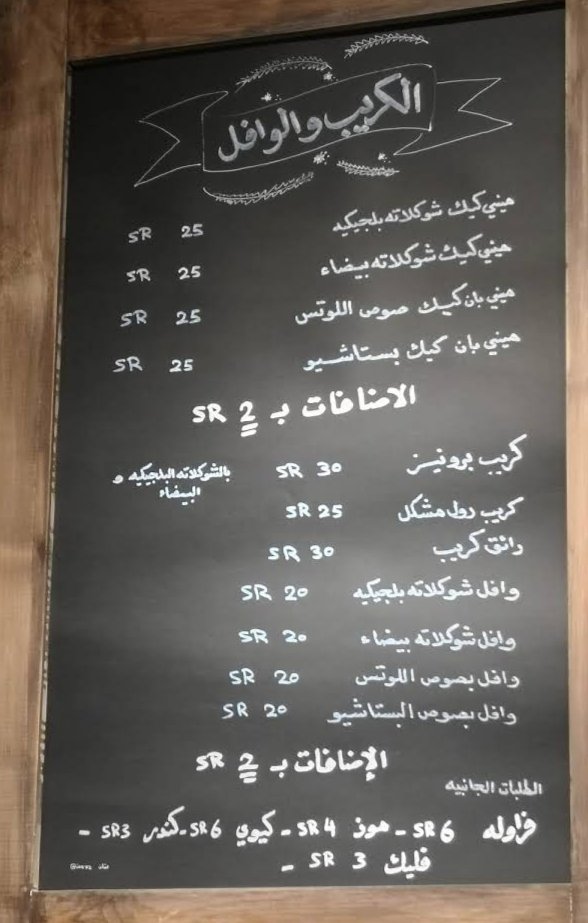 الكريب والوافل
ميني كيك شوكلاته بلجيكيه 25 SR
ميني كيك شوكلاته بيضاء 25 SR
ميني بان كيك صوص اللوتس 25 SR
ميني بان كيك بستاشيو 25 SR
الاضافات بـ 2 SR
كريب برونيز 30 SR بالشوكلاته البلجيكيه و
البيضاء
كريب رول مشكل 25 SR
رائق كريب 30 SR
وافل شوكلاته بلجيكيه 20 SR
وافل شوكلاته بيضاء 20 SR
وافل بصوص اللوتس 20 SR
وافل بصوص البستاشيو 20 SR
الإضافات بـ 2 SR
الطلبات الجانبيه
فراوله 6 SR - موز 4 SR - كيوي 6 SR - كندر 3 SR -
فليك 3 SR -